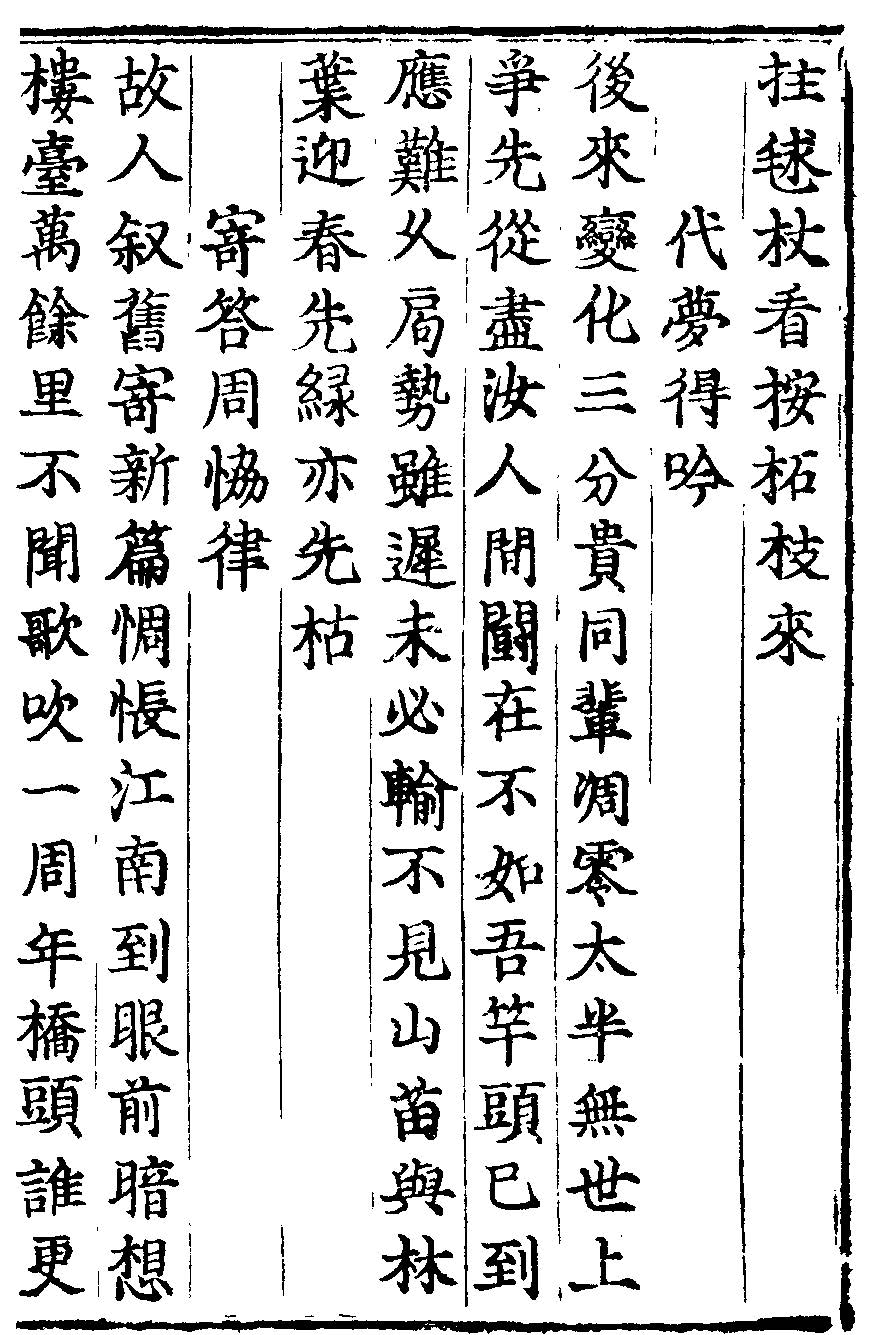 拄毬杖看按柘枝來
代夢得吟
後來變化三分貴同輩凋零太半無世上
爭先從盡汝人間鬬在不如吾竿頭已到
應難乆局勢雖遲未必輸不見山苗與林
葉迎春先綠亦先枯
寄答周恊律
故人叙舊寄新篇惆悵江南到眼前暗想
樓臺萬餘里不聞歌吹一周年橋頭誰更